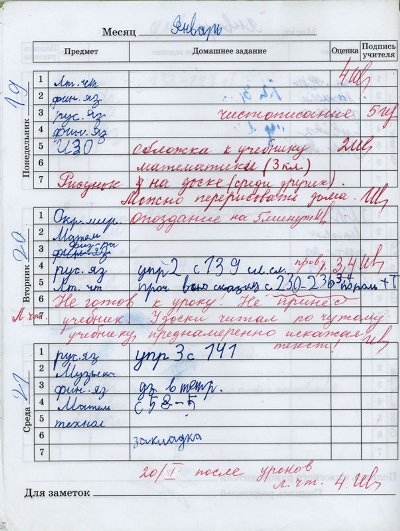 Месяц Январь
Предмет Домашнее задание Оценка Подпись учителя
Понедельник 19
1 Лит. чт. 4
2 фин. яз.
3 рус. яз. чистописание 5
4 фин. яз.
5 ИЗО обложка к учебнику 2
6 математики (3 кл.)
7 Рисунок я на доске (среди других).
Можно перерисовать дома.
Вторник 20
1 Окр. мир. опоздание на 5 минут
2 Матем
3 физ-ра
фин. яз
4 рус. яз упр 2 с 139 пров. 3,4
5 Лит. чт с. 230-236
6 Не готов к уроку! Не принёс
Л. чт.
учебник. У доски читал по чужому
7 учебнику, преднамеренно искажая
текст!
Среда 21
1 рус. яз упр 3 с 141
2 Музыка
3 фин. яз дз в тетр.
4 Матем с 58-5
5 технол
6 закладка
7
20/I после уроков
Для заметок л. чт. 4